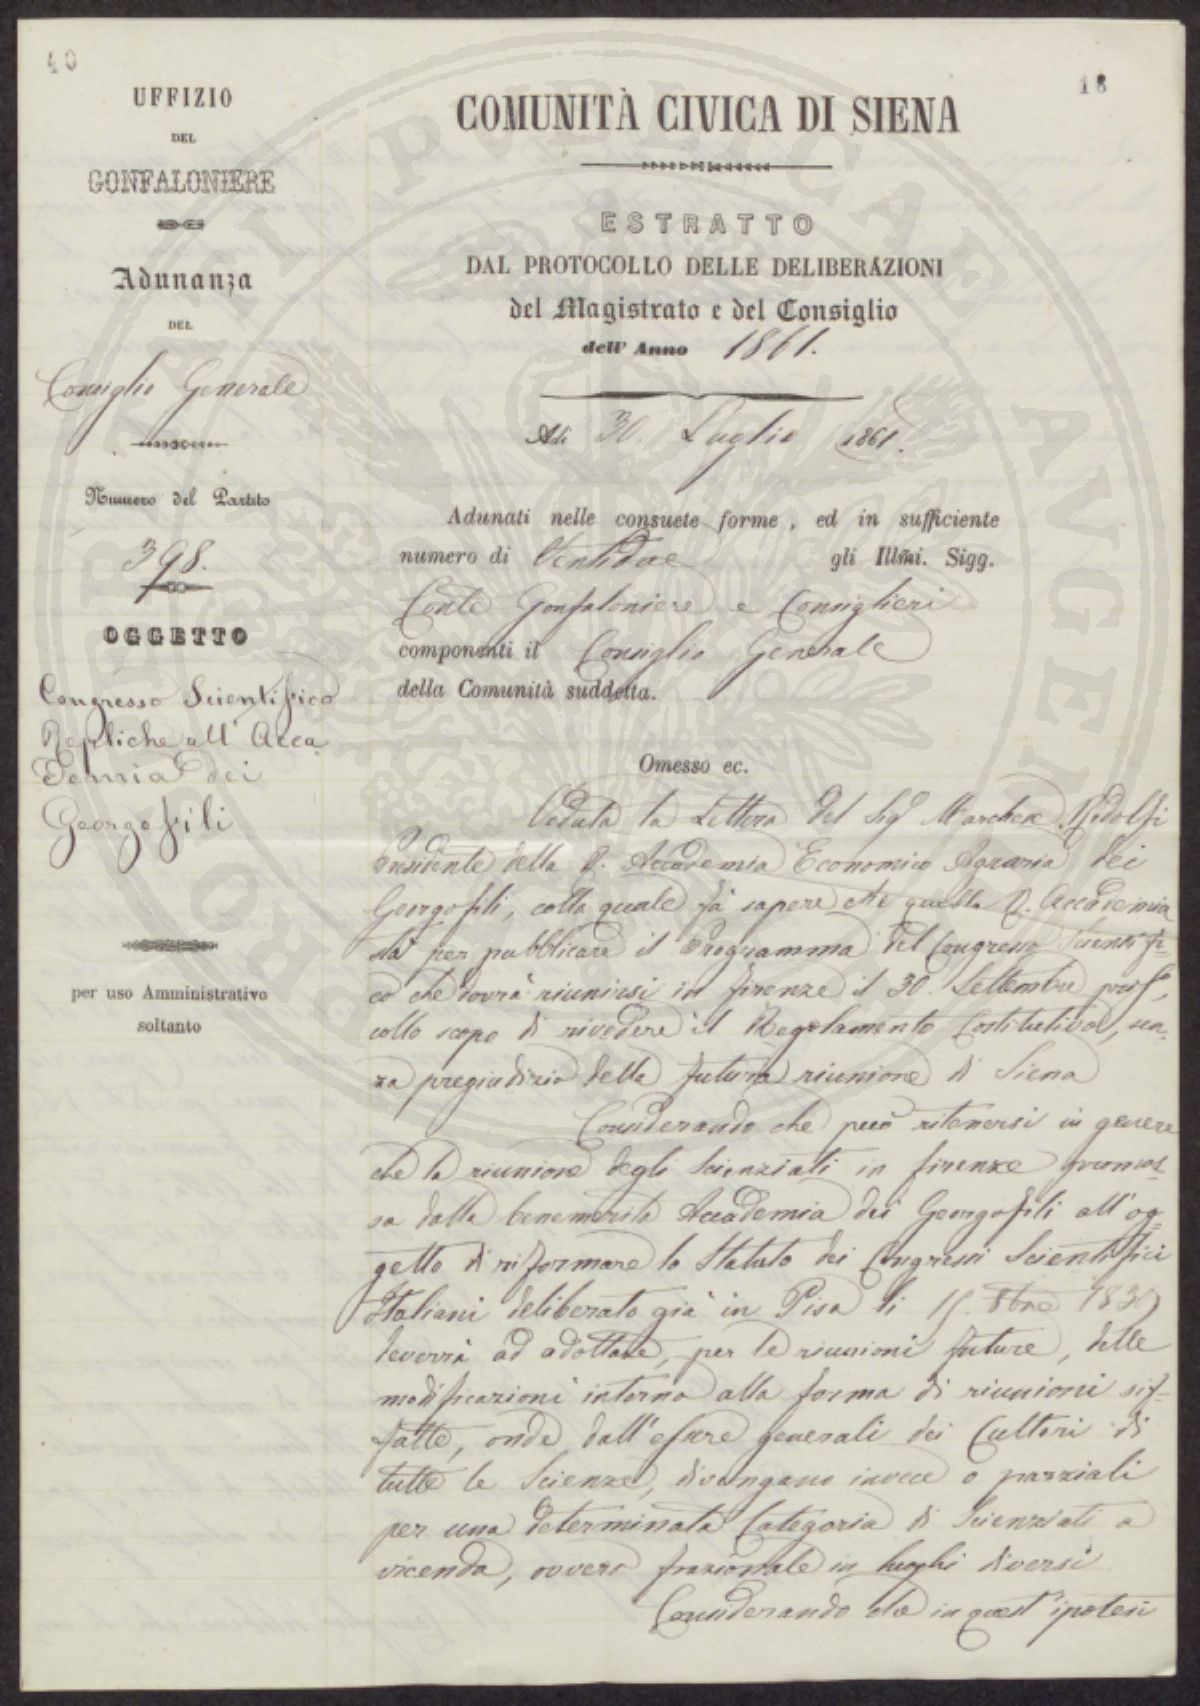 40
18
UFFIZIO
DEL
GONFALONIERE
Adunanza
DEL
Consiglio Generale
Numero del Partito
398.
OGGETTO
Congresso Scientifico
Repliche all' Acca
demia dei
Georgofili
per uso Amministrativo
soltanto
COMUNITÀ CIVICA DI SIENA
ESTRATTO
DAL PROTOCOLLO DELLE DELIBERAZIONI
del Magistrato e del Consiglio
dell' Anno 1861.
Adi 30. Luglio 1861.
Adunati nelle consuete forme, ed in sufficiente
numero di Ventidue gli Illm̃i. Sigg.
Conte Gonfaloniere e Consiglieri
componenti il Consiglio Generale
della Comunità suddetta.
Omesso ec.
Veduta la Lettera del Sig Marchese Ridolfi
Presidente della R. Accademia Economico Agraria dei
Georgofili, colla quale fà sapere che quella R. Accademia
stà per pubblicare il Programma del Congresso Scientifi-
co che dovrà riunirsi in firenze il 30. Settembre
collo scopo di rivedere il Regolamento Costitutivo, sen-
za pregiudizio della futura riunione di Siena
Considerando che può ritenersi in genere
che la riunione degli Scienziati in firenze promos-
sa dalla benemerita Accademia dei Georgofili all'og-
getto di riformare lo Statuto dei Congressi Scientifici
Italiani deliberato già in Pisa li 15. 8bre 1839
deverrà ad adottare, per le riunioni future, delle
modificazioni intorno alla forma di riunioni sif-
fatte, onde dall'essere generali dei Cultori di
tutte le Scienze, divengano invece o parziali
per una determinata Categoria di Scienziati a
vicenda, ovvero frazionate in luoghi diversi
Considerando che in quest'ipotesi